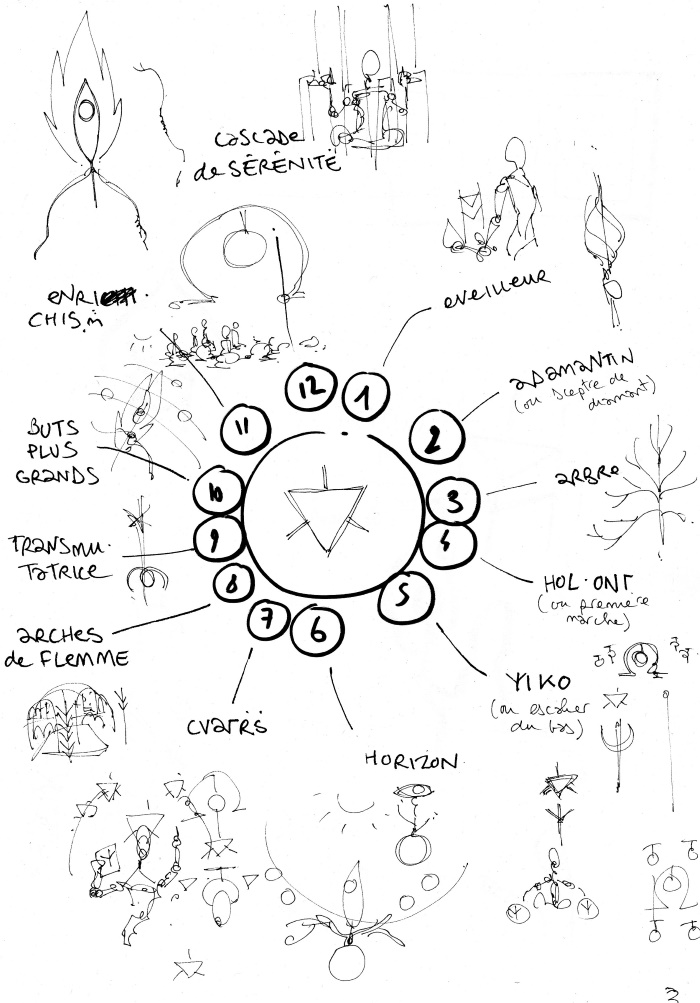 CASCADE
de SÉRÉNITÉ
eveilleur
ENRI
CHIS.M
ADAMANTIN
(ou Sceptre de
diamant)
BUTS
PLUS
GRANDS
ARBRE
TRANSMU.
TATRICE
HOL.ONT
(ou première
marche)
ARCHES
de FLEMME
YIKO
(ou escalier
du bas)
CVARTS
HORIZON
12
1
11
2
10
3
9
4
8
5
7
6
2